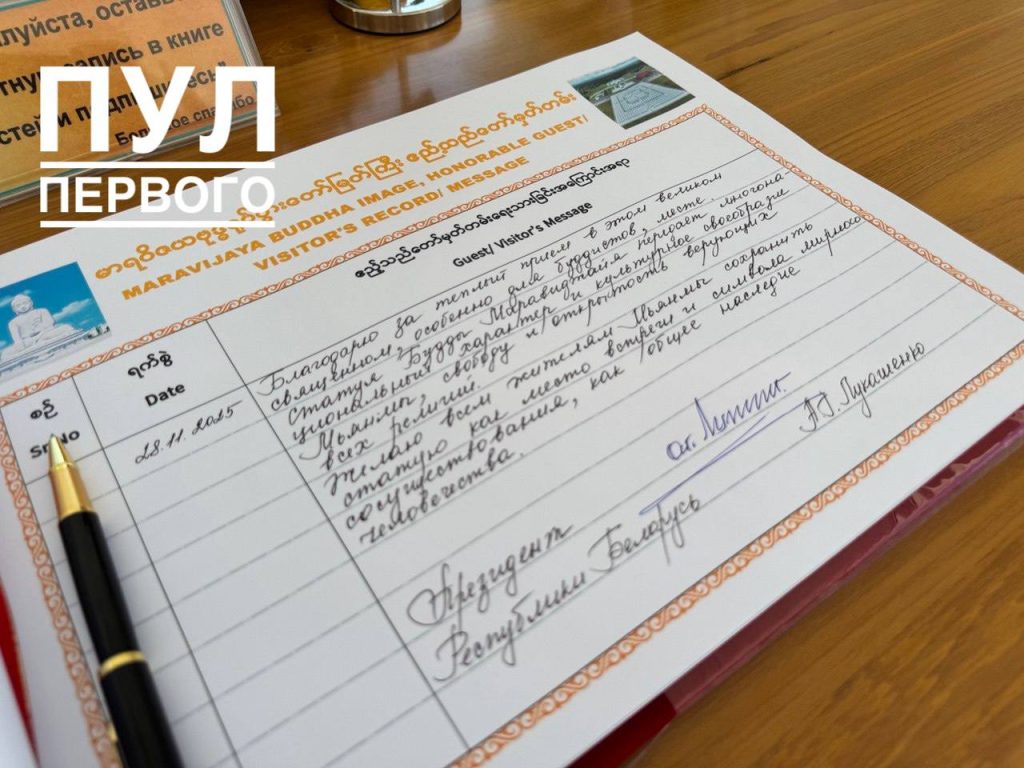 луйста, оставь
тную запись в книге
стей и подпишитесь"
Большое спасибо
ПУЛ
ПЕРВОГО
MARAVIJAYA BUDDHA IMAGE, HONORABLE GUEST/
VISITOR'S RECORD/ MESSAGE
စဉ်
Sr.No
ရက်စွဲ
Date
ဧည့်သည်တော်မှတ်တမ်းရေးသားခြင်းအကြောင်းအရာ
Guest/ Visitor's Message
28.11.2025
Благодарю за теплый прием в этом великом
священном, особенно для буддистов, месте.
Статуя Будды Маравиджайя передает многона
циональный характер и культурное своеобразие
Мьянмы, свободу и открытость верующих
всех религий.
Желаю всем жителям Мьянмы сохранить
статую как место встречи и символа мирного
сосуществования, как общее наследие
человечества.
Президент
Республики Беларусь
А.Г. Лукашенко